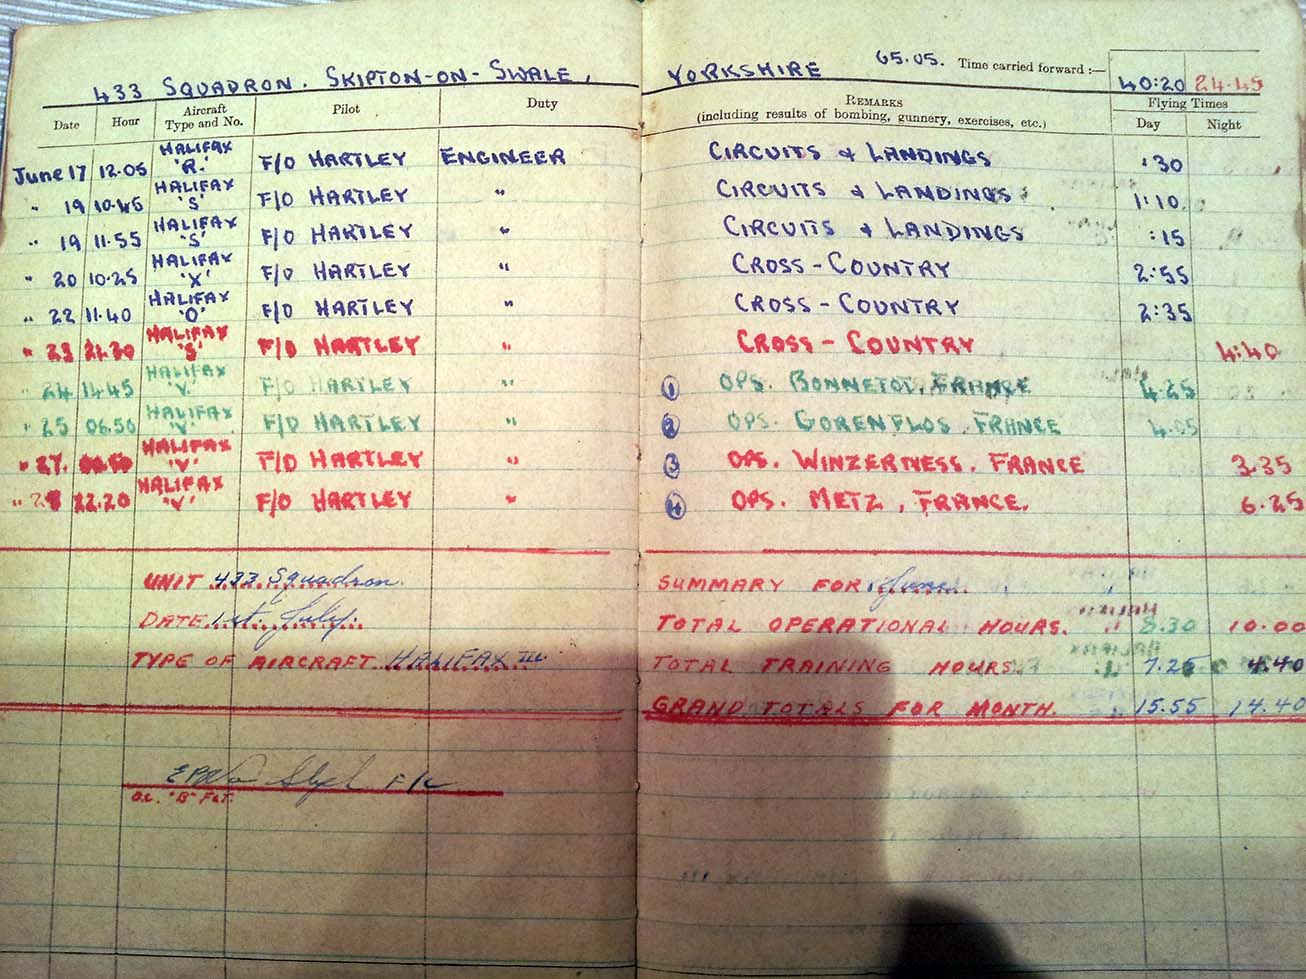 433 SQUADRON. SKIPTON-ON-SWALE, YORKSHIRE 65.05. Time carried forward :— 40:20 24.45
Date Hour Aircraft Type and No. Pilot Duty REMARKS (including results of bombing, gunnery, exercises, etc.) Flying Times Day Night
June 17 12.05 HALIFAX 'R.' F/O HARTLEY ENGINEER CIRCUITS & LANDINGS :30
" 19 10.45 HALIFAX 'S' F/O HARTLEY " CIRCUITS & LANDINGS 1:10
" 19 11.55 HALIFAX 'S' F/O HARTLEY " CIRCUITS & LANDINGS :15
" 20 10.25 HALIFAX 'X' F/O HARTLEY " CROSS-COUNTRY 2:55
" 22 11.40 HALIFAX 'O' F/O HARTLEY " CROSS-COUNTRY 2:35
" 23 21.30 HALIFAX 'S' F/O HARTLEY " CROSS-COUNTRY 4:40
" 24 14.45 HALIFAX 'V' F/O HARTLEY " 1 OPS. FRANCE 4.25
" 25 06.50 HALIFAX 'V' F/O HARTLEY " 2 OPS. GORENFLOS, FRANCE 4.05
" 27. HALIFAX 'V' F/O HARTLEY " 3 OPS. WINZERNESS. FRANCE 3.35
" 22.20 HALIFAX 'V' F/O HARTLEY " 4 OPS. METZ, FRANCE. 6.25
UNIT 433 Squadron. SUMMARY FOR June
DATE 1st. July. TOTAL OPERATIONAL HOURS. 8.30 10.00
TYPE OF AIRCRAFT HALIFAX III TOTAL TRAINING HOURS. 7.25 4.40
GRAND TOTALS FOR MONTH. 15.55 14.40
F/L
O.C. "B" FLT.